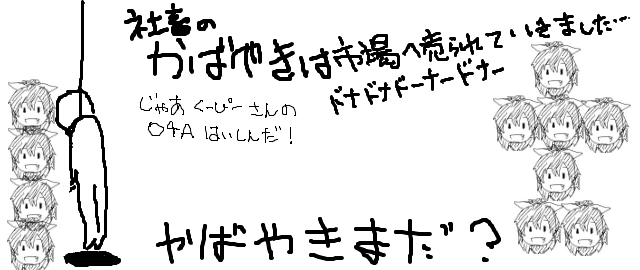 社畜の
かばやきは市場へ売られていきました…
ドナドナドーナードナー
じゃあ くーぴーさんの
O4A はいしんだ!
かばやきまだ?